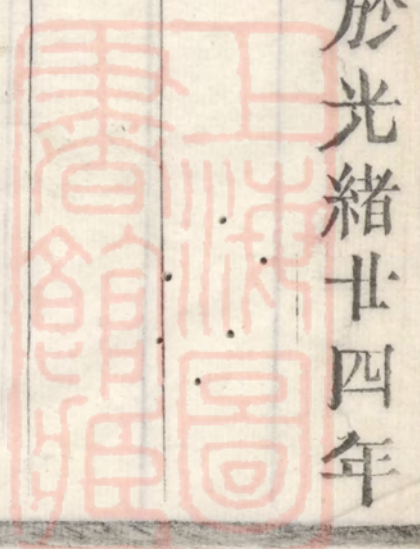 於光緒廿四年
上海圖
書館藏